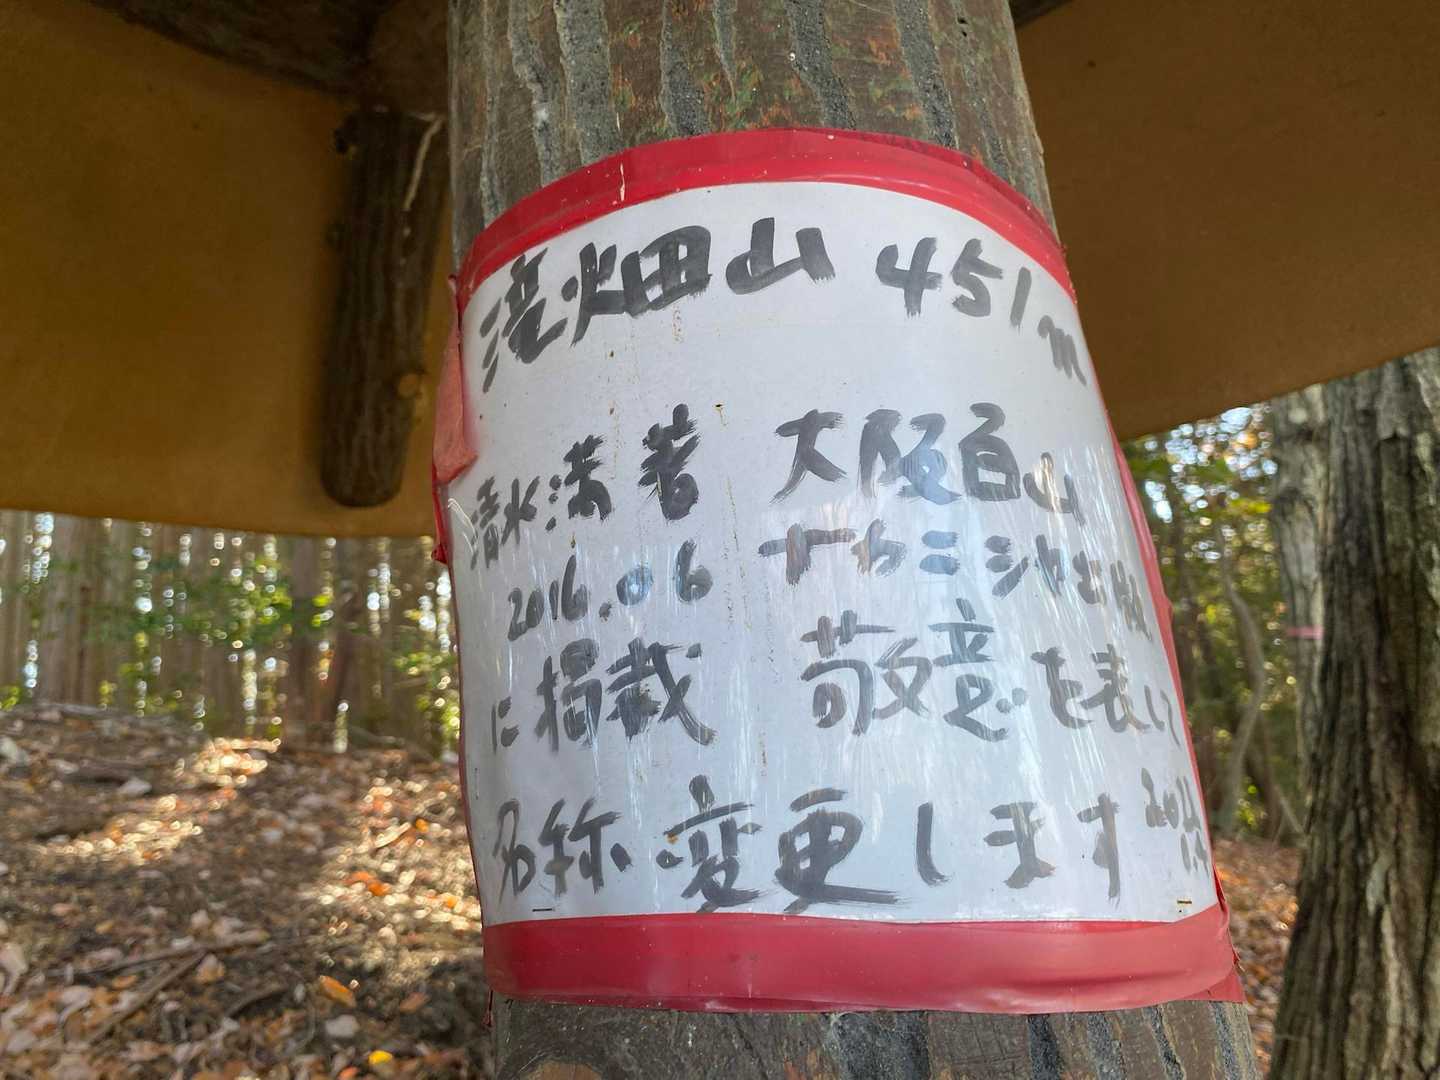 滝畑山 451m
清水満著 大阪百山
2016.06 ナカニシヤ出版
に掲載 敬意を表して
名称変更します